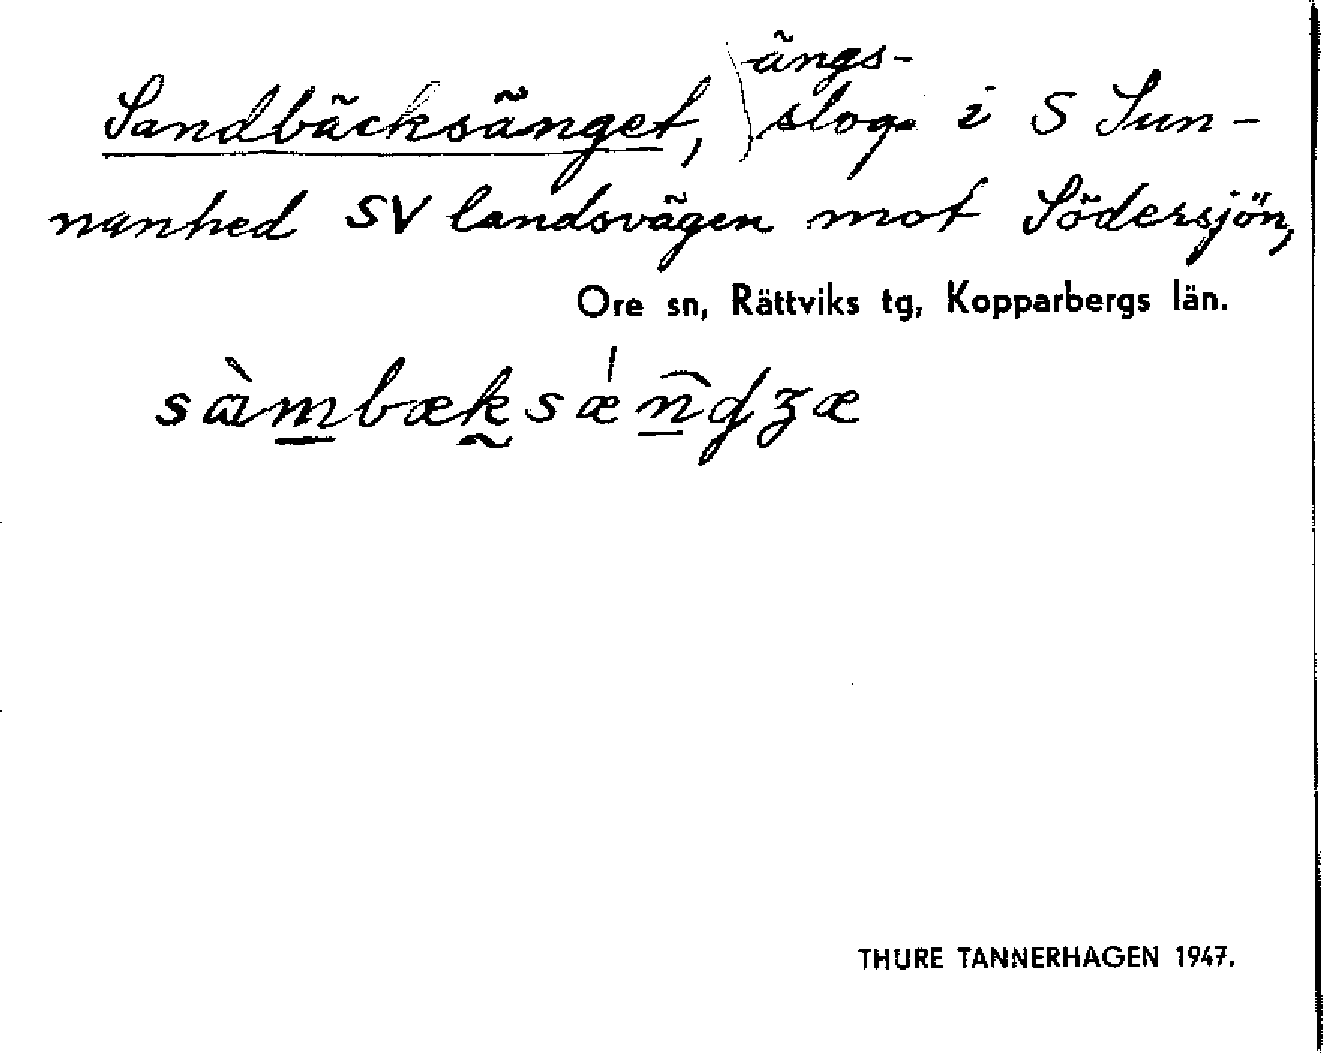 ängs-
Sandbäcksänget, slog. i S Sun-
nanhed SV landsvägen mot Södersjön,
Ore sn, Rättviks tg, Kopparbergs län.
sàmbæksǽn̂ʠʒæ
THURE TANNERHAGEN 1947.